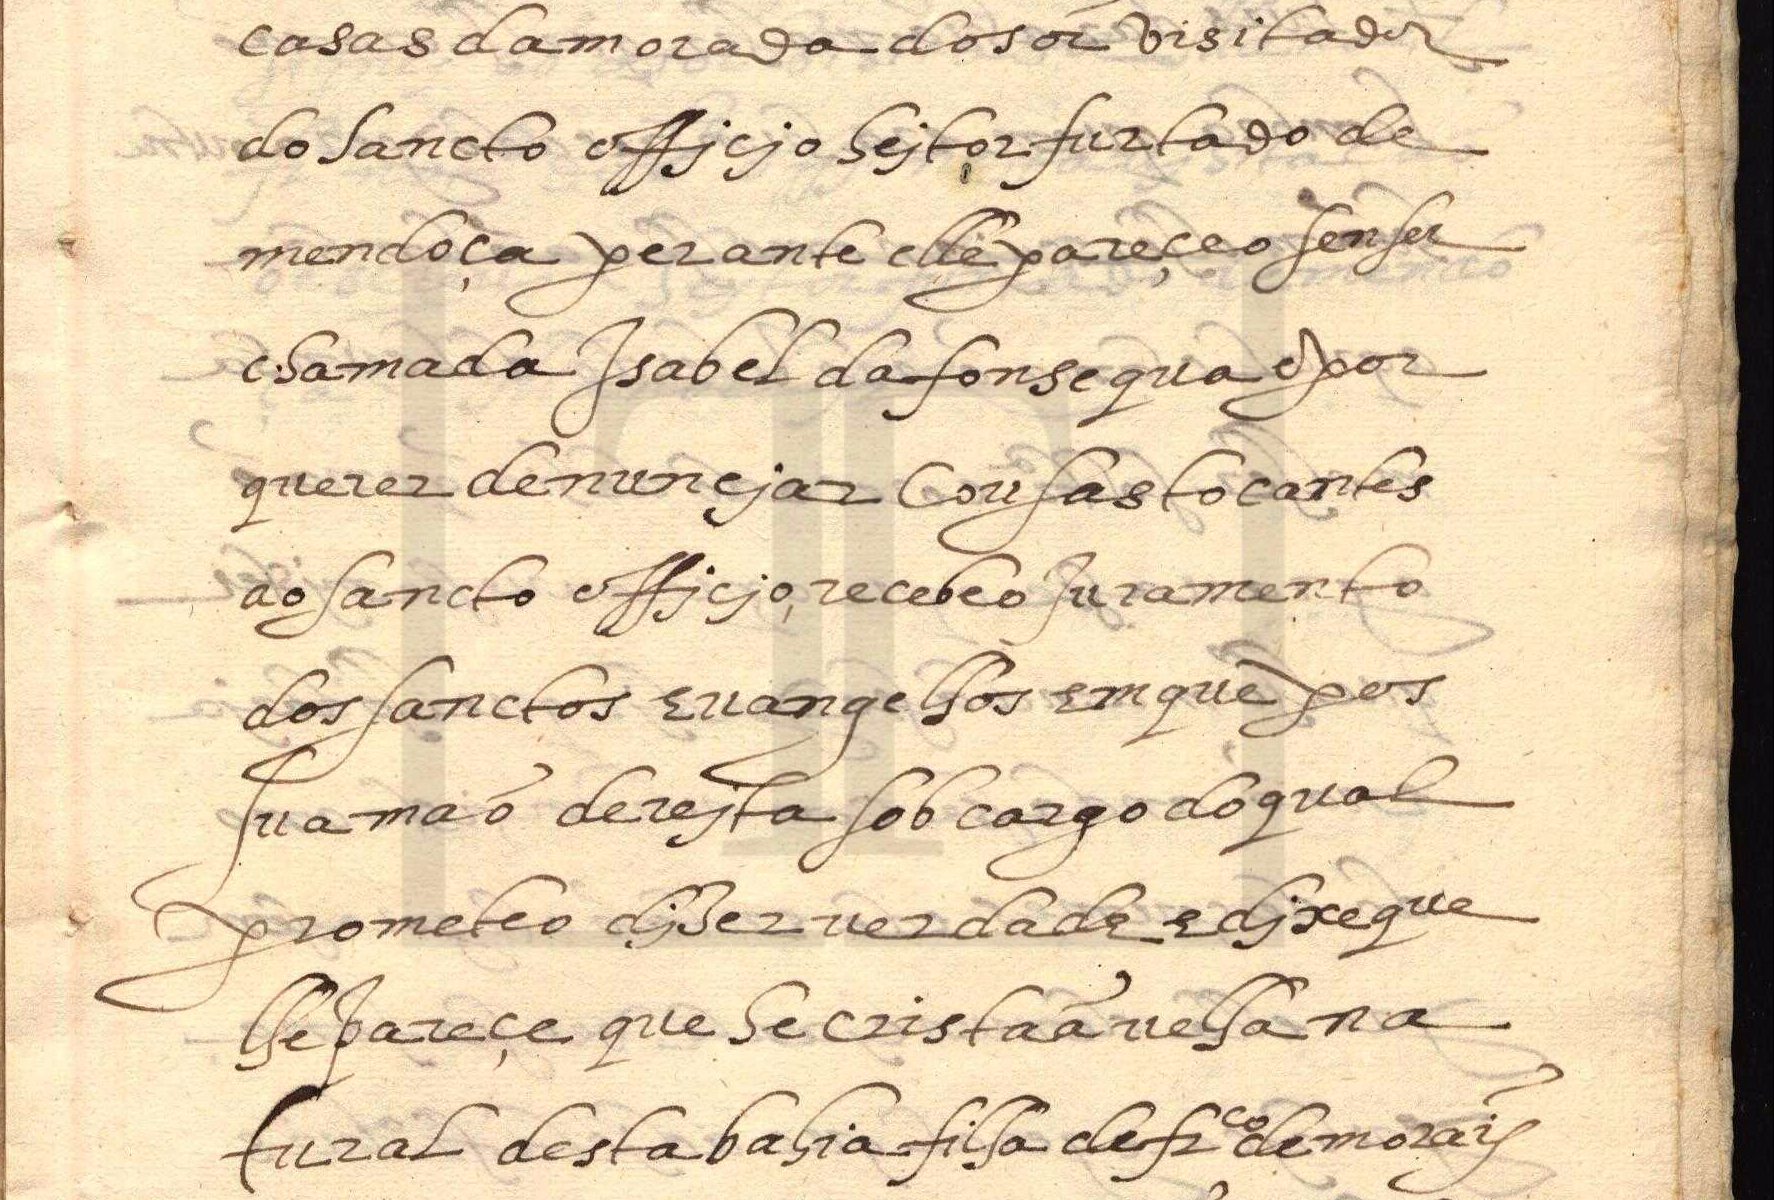 casas da morada do sõr visitador
do sancto officjo hejtor furtado de
mendoça perante elle pareçeo sen ser
chamada Isabel da fonsequa e por
querer denuncjar Cousas tocantes
ao sancto officjo, recebeo Juramento
dos sanctos evangelhos em que pos
sua maõ derejta sob cargo do qual
prometeo djzer verdade e djxe que
lhe pareçe que he cristaã velha na
tural desta bahia filha de frco de morais